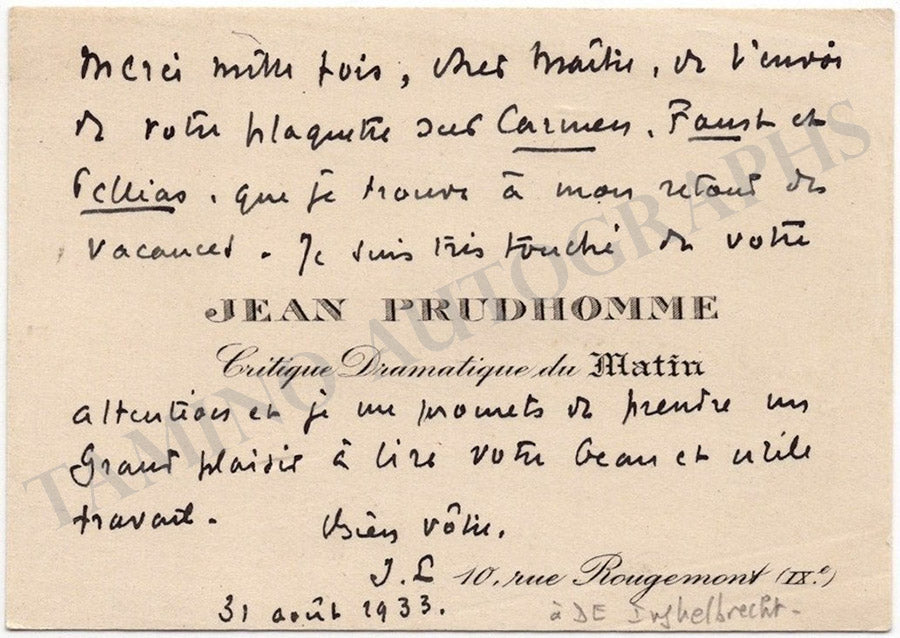 Merci mille fois, cher Maître, de l'envoi
de votre plaquette sur Carmen, Faust et
Pelléas, que je trouve à mon retour des
vacances. Je suis très touché de votre
JEAN PRUDHOMME
Critique Dramatique du Matin
attention et je me promets de prendre un
Grand plaisir à lire votre beau et utile
travail. Bien vôtre,
10, rue Rougemont (IX.e)
31 août 1933. à DE Inghelbrecht-
TAMINO AUTOGRAPHS